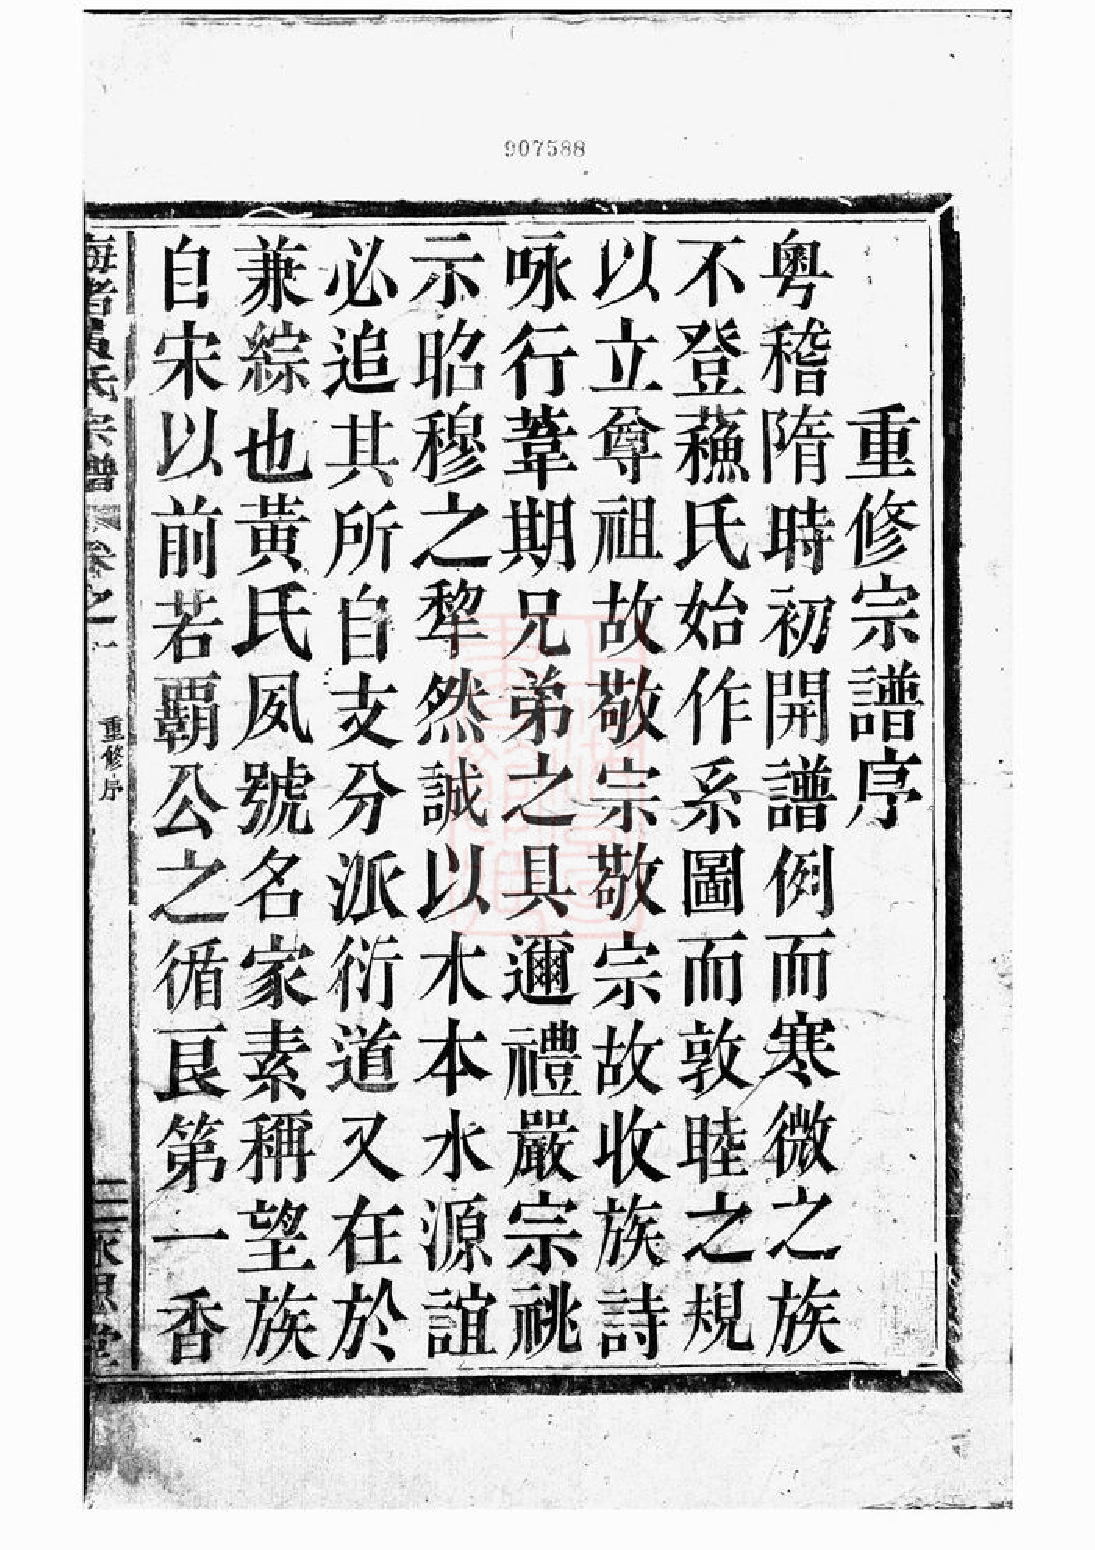 907588
重修宗譜序
粤稽隋時初開譜例而寒微之族
不登蘓氏始作系圖而敦睦之規
以立尊祖故敬宗敬宗故收族詩
咏行葦期兄弟之具邇禮嚴宗祧
示昭穆之犂然誠以木本水源誼
必追其所自支分派衍道又在於
兼綜也黃氏夙號名家素稱望族
自宋以前若霸公之循良第一香
海者黃氏宗譜 卷之一 重修序 二 永思堂